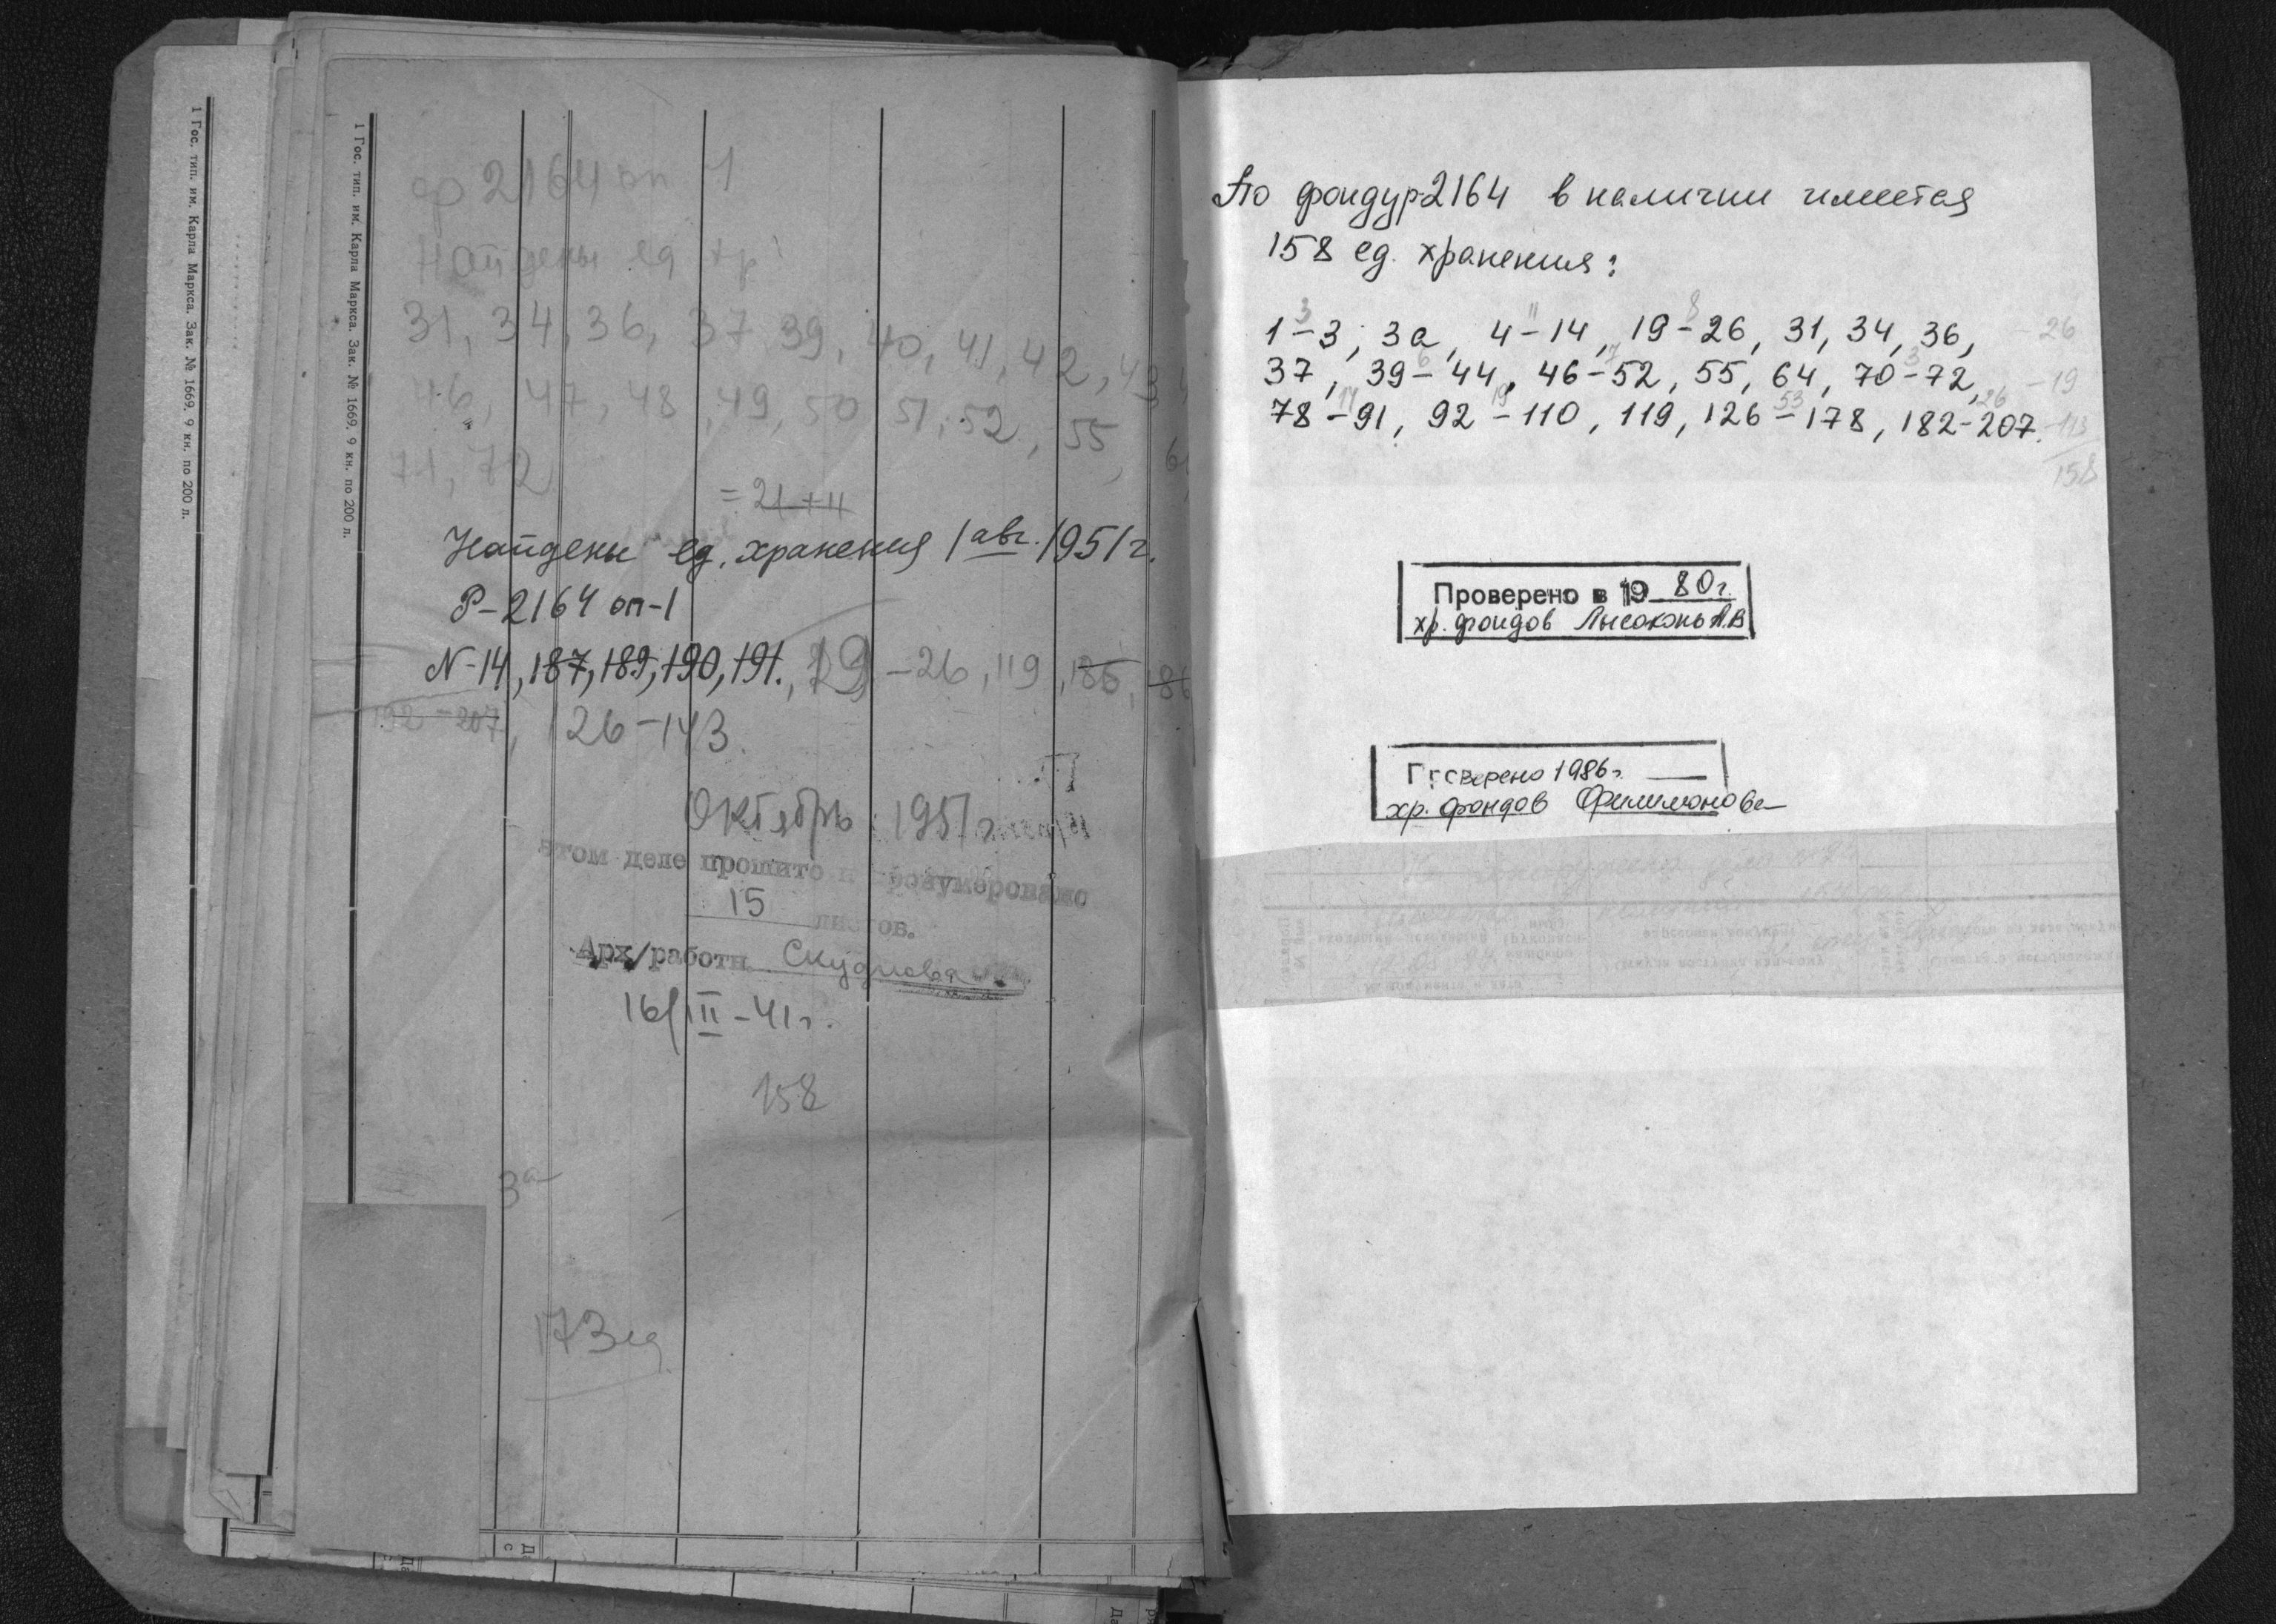 1 Гос. тип. им. Карла Маркса. Зак. № 1669. 9 кн. по 200 л.
1 Гос. тип. им. Карла Маркса. Зак. № 1669. 9 кн. по 200 л.
ф 2164 оп 1
Найдены ед хр
31, 34, 36, 37 39, 40, 41, 42, 43
46, 47, 48, 49, 50 51, 52, 55,
71, 72
= 21 + 11
Найдены ед. хранения 1 авг. 1951 г.
Р-2164 оп-1
N-14, 187, 189, 190, 191., 19 - 26, 119, 185, 186
192 - 207, 126-143.
Октябрь 1951 г.
этом деле прошито и пронумеровано
15 листов.
Арх/работн. Скуднова
16/III-41 г.
158
3а
173 ед
По фонду р-2164 в наличии имеется
158 ед. хранения:
3 11 8
1-3, 3а, 4-14, 19-26, 31, 34, 36, - 26
6 7 3
37, 39-44, 46-52, 55, 64, 70-72, - 19
14 19 53 26
78-91, 92-110, 119, 126-178, 182-207. - 113
158
Проверено в 1980 г.
хр. фондов Лысоконь А.В
Проверено 1986 г.
хр. фондов Филимонова